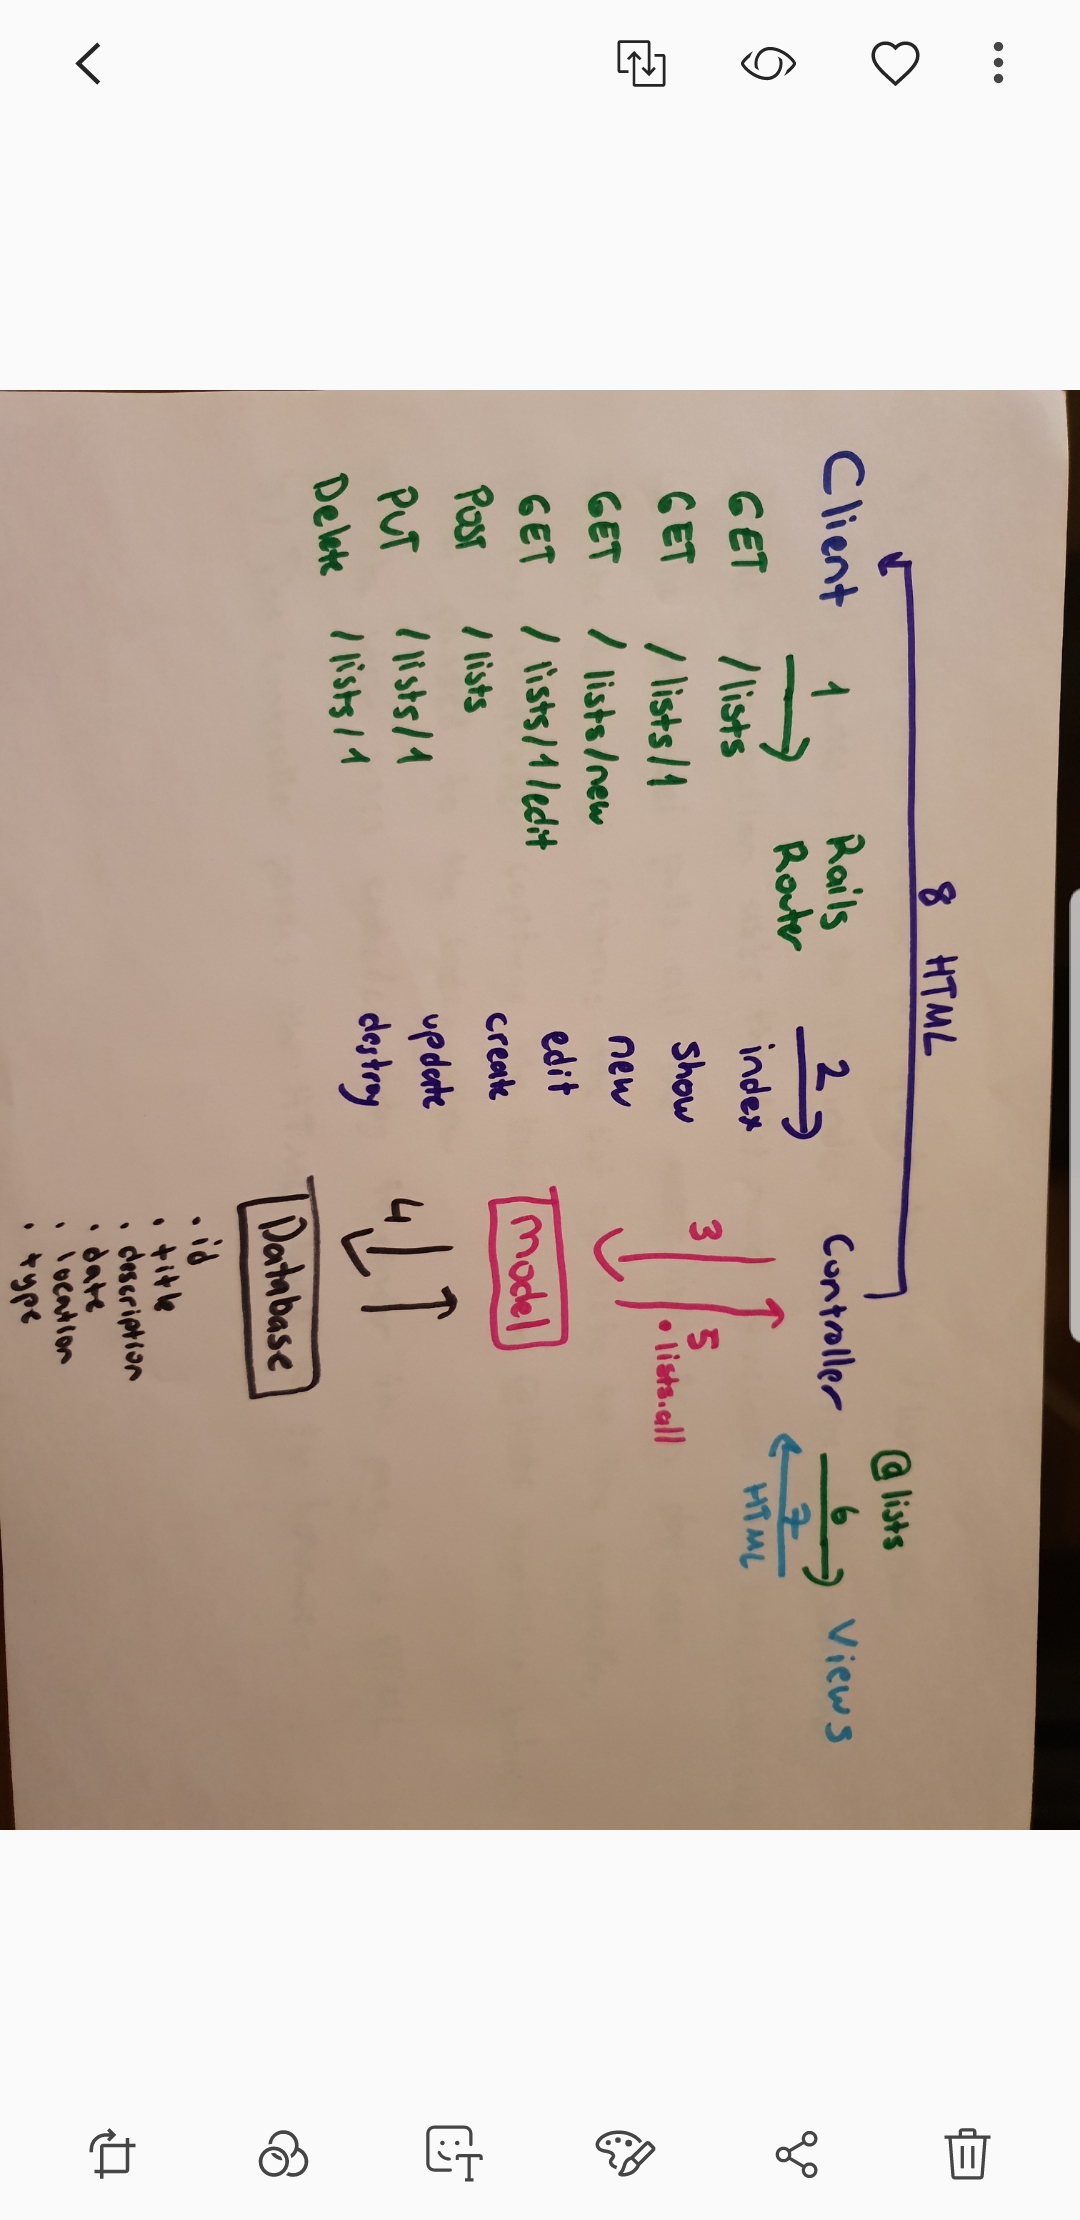 8 HTML
@lists
Client
1
Rails
Router
2
Controller
6
Views
7
HTML
GET /lists index
GET /lists/1 show
GET /lists/new new
GET /lists/1/edit edit
POST /lists create
PUT /lists/1 update
Delete /lists/1 destroy
3
5
• lists.all
Model
4
Database
• id
• title
• description
• date
• location
• type